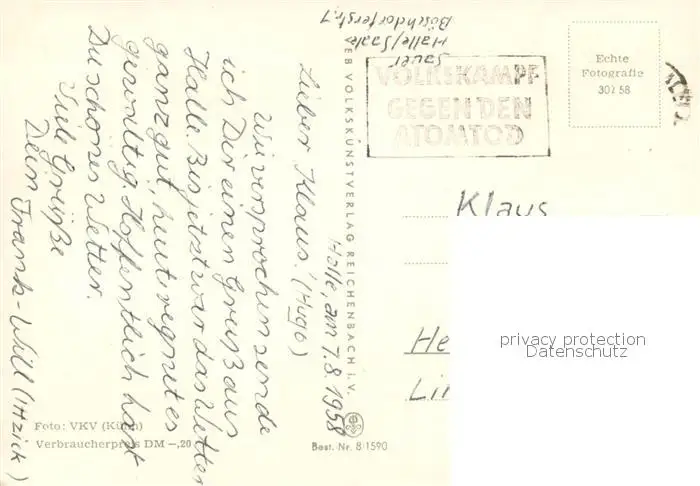 Halle, am 7.8.1958
Lieber Klaus! (Hugo)
Wie versprochen sende
ich Dir einen Gruß aus
Halle. Bis jetzt war das Wetter
ganz gut, heut regnet es
gewaltig. Hoffentlich hast
Du schönes Wetter.
Viele Grüße
Dein Frank-Will (Itzick)
Sauer
Halle/Saale
Böschdorferstr. 1
VOLKSKAMPF
GEGEN DEN
ATOMTOD
Echte
Fotografie
302 58
EB VOLKSKUNSTVERLAG REICHENBACH i.V.
Klaus
He
Lin
privacy protection
Datenschutz
Foto: VKV (Kühn)
Verbraucherpreis DM -,20
Best. Nr. 8 1590